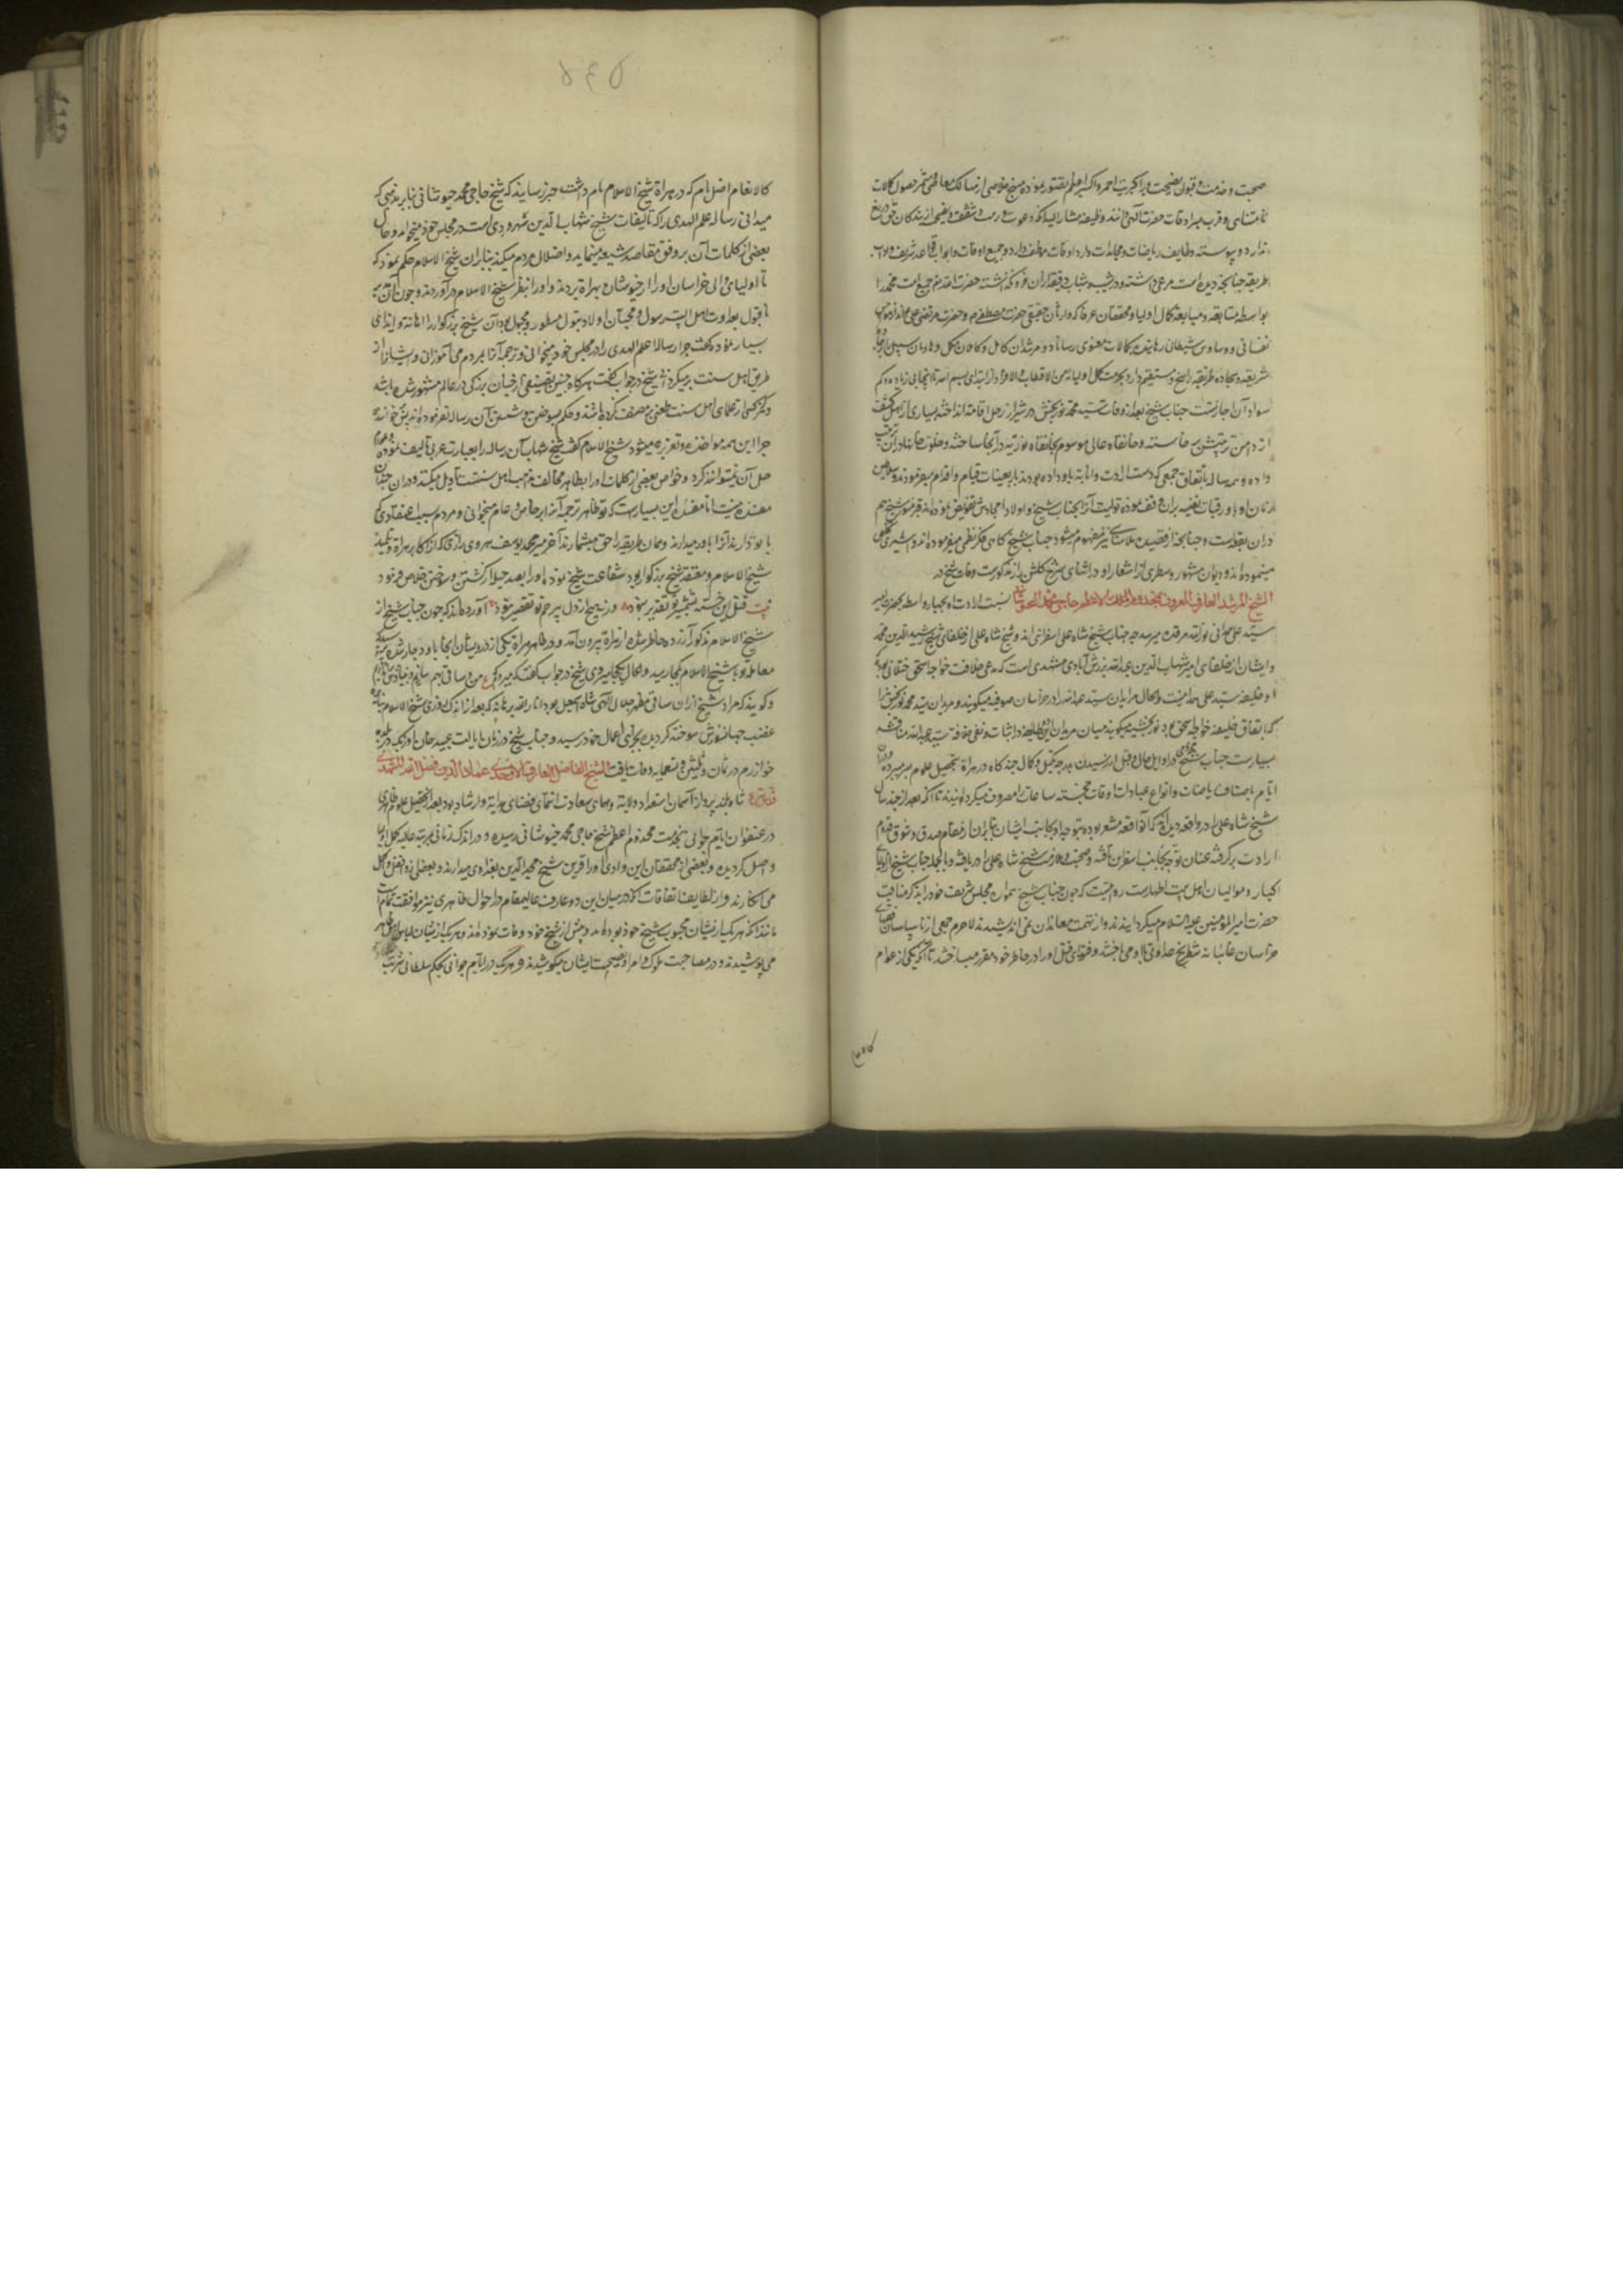 صحبت و خدمت و قبول نصیحت ویرا کبریت احمر و اکسیر اعظم تصور نموده
نامتناهی و قرب سرادقات حضرت الهی دانند و وظیفه مشار الیه آنکه دعوت و رحمت و شفقت و نصیحت از بندگان حق دریغ
ندارد و پیوسته وظایف ریاضات و مجاهدات دارد و اوقات موظف دارد و جمیع اوقات و ابواب
طریقه چنانچه دیده است مرعی داشته
بواسطه متابعت و مبایعت کمال اولیا و محققان عرفا که وارثان حقیقی حضرت مصطفی و حضرت مرتضی علی
نفسانی و وساوس شیطانی رهانیده بکمالات معنوی رساناد و مرشدان کامل و کاملان مکمل و هادیان سبیل
شریعت و جاده طریقه راسخ و مستقیم دارد بحرمت کمل اولیائه من الاقطاب و الافراد
سواد آن اجازتست جناب شیخ بعد از وفات سید محمد نوربخش در شیراز رحل اقامت انداخته بسیاری از اهل کشف
از دامن تربیتش برخاستند و خانقاه عالی موسوم بخانقاه نوریه در آنجا ساخته و خلوت خانها در آن ترتیب
داده و سر ساله باتفاق جمعی که دست ارادت و انابه باو داده بودند باربعینات قیام و اقدام میفرمودند و سلاطین
زمان او باو رقبات نفیسه بران وقف نموده تولیت آنرا بجناب شیخ و اولاد امجادش تفویض نموده اند و قبر منور شیخ هم
دران بقعه است و چنانچه از قصیده نیز مفهوم میشود جناب شیخ گاهی فکر نظمی میفرموده اند و اسیری تخلص
مینموده اند و دیوان مشهور و سطری از اشعار او در اثنای شرح گلشن راز مذکورست وفات شیخ در
الشیخ المرشد العارف المعروف بمخدوم الاعظم حاجی محمد الخبوشانی نسبت ارادت او بچهار واسطه بحضرت امیر
سید علی همدانی نور الله مرقده میرسد چه جناب شیخ شاه علی اسفراینی اند و شیخ شاه علی از خلفای شیخ رشید الدین محمد
و ایشان از خلفای امیر شهاب الدین عبدالله برزش آبادی مشهدی است که مدعی خلافت خواجه اسحق ختلانی بود که
او خلیفه سید علی همدانیست و بحال مریدان سید عبدالله را در خراسان صوفیه میگویند و مریدان سید محمد نوربخش را
که باتفاق خلیفه خواجه اسحق بود نوربخشیه میگویند میان مریدان این دو طایفه در اثبات و نفی خلافت سید عبدالله مناقشه
بسیارست جناب شیخ در اوایل حال و قبل از رسیدن بدرجه تکمیل و کمال چندگاه در هراة بتحصیل علوم بسر میبرده
ایام باصناف ریاضات و انواع عبادات اوقات خجسته ساعات را مصروف میگردانیدند تا آنکه بعد از چند سال
شیخ شاه علی را در واقعه دیدند که آن واقعه مشعر بود بتوجه او بجانب ایشان بنابران از مقام صدق و شوق قدم
ارادت برگرفته عنان توجه بجانب اسفراین تافته و صحبت و ملازمت شیخ شاه علی را دریافته و بالجمله جناب شیخ از اولیای
کبار و موالیان اهل بیت اطهارست و مرویست که چون جناب شیخ همواره مجلس شریف خود را بذکر مناقب
حضرت امیر المؤمنین علیه السلام میگردانیدند و از تهمت معاندان نمی اندیشیدند لاجرم جمعی از ناسپاسان
خراسان غایبانه شطرنج عداوتی با او می باختند و فتوای قتل او را در خاطر خود مقرر میساختند تا آنکه یکی از عوام
کالانعام
۵۴۵
کالانعام اضل ام که در هراة شیخ الاسلام نام داشت خبر رسانیدند که شیخ حاجی محمد خبوشانی بنابر مذهبی که
میدانی رساله علم الهدی را که تالیفات شیخ شهاب الدین سهروردی است در مجلس خود میخواند و حال
بعضی از کلمات آن بر وفق مقاصد شیعه مینماید و اضلال مردم میکند بنابران شیخ الاسلام حکم نمود که
تا اولیای والی خراسان او را از خبوشان بهراة بردند و او را بنظر شیخ الاسلام درآوردند و چون
بعداوت اهل البیت رسول و محبان اولاد بتول مفطور و مجبول بود آن شیخ بزرگوار را اهانت و ایذای
بسیار نموده گفت چرا رساله اعلم الهدی را در مجلس خود میخوانی و ترجمه آنرا بمردم می آموزانی و ایشانرا از
طریق اهل سنت بر میگردانی شیخ در جواب گفت هرگاه چنین تصنیفی از چنان بزرگی در عالم مشهور شده باشد
و هرگز کسی از علمای اهل سنت طعنی بر مصنف نکرده باشند و حکم بسوختن و شستن آن رساله نفرموده اند
چرا این همه مواخذه و تعزیر میشود شیخ الاسلام گفت شیخ شهاب آن رساله را بعبارت عربی تالیف نموده و عوام
حل آن نمیتوانند کرد و خواص بعضی از کلمات او را بظاهر مخالف مذهب اهل سنت است تاویل میکنند و دران چندان
مفسده نیست اما مفسده این بسیارست که تو ظاهر ترجمه آنرا بر خاص و عام میخوانی و مردم بسبب اعتقادی که
با تو دارند آنرا باور میدارند و همان طریقه را حق میشمارند آخر میر محمد یوسف هروی رازی که از اکابر هراة و تلمیذ
شیخ الاسلام و معتقد شیخ بزرگوار بود شفاعت شیخ نموده او را بعد حیلا از کشتن و سوختن خلاص فرمود
بیت قتل این خسته بشمشیر تو تقدیر نبود ورنه هیچ از دل بیرحم تو تقصیر نبود آورده اند که چون جناب شیخ از
شیخ الاسلام مذکور آزرده خاطر شده از هراة بیرون آمد و در ظاهر هراة یکی از درویشان آنجا باو دچار شده پرسید که
معامله تو با شیخ الاسلام بکجا رسید و الحال بکجا میروی شیخ در جواب گفت که میروم ع من و ساقی بهم سازیم و بنیادش براندازیم
و گویند که مراد شیخ ازان ساقی مظهر جلال الهی شاه اسمعیل بود انار الله برهانه که بعد از اندک روزی شیخ الاسلام
غضب جهانسوزش سوخته گردیده بجزای اعمال خود رسید و جناب شیخ در زمان ایالت عبید خان اوزبک در بلده
خوارزم در ثمان و ثلثین و تسعمایه وفات یافت الشیخ الفاضل العارف عماد الدین فضل الله المشهدی
قدس سره شاه بلند پرواز آسمان استعداد ولایة و همای سعادت انتمای فضای هدایة و ارشاد بود بعد از تحصیل علوم ظاهری
در عنفوان ایام جوانی بخدمت مخدوم اعظم شیخ حاجی محمد خبوشانی رسیده و در اندک زمانی بمرتبه علیه کمل اولیا
واصل گردیده و بعضی از محققان این وادی او را قرین شیخ مجد الدین بغدادی میدارند و بعضی ازو افضل و اکمل
می انگارند و از لطایف اتفاقات آنکه در میان این دو عارف عالیمقام در احوال ظاهری نیز موافقت تمام است
مانند آنکه هر یک از ایشان محبوب شیخ خود بوده اند و پیش از شیخ خود وفات نموده اند و هر یک از ایشان لباس
می پوشیدند و در مصاحبت ملوک و امرا و نصیحت ایشان میکوشیدند و هر یک در ایام جوانی بحکم سلطانی شربت